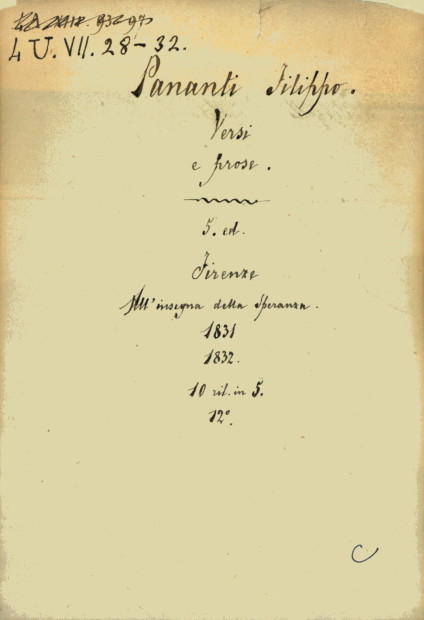 4 U. VII. 28-32.
Pananti Filippo.
Versi
e prose.
5. ed.
Firenze
All' insegna della Speranza.
1831
1832.
10 ril. in 5.
12°.
C